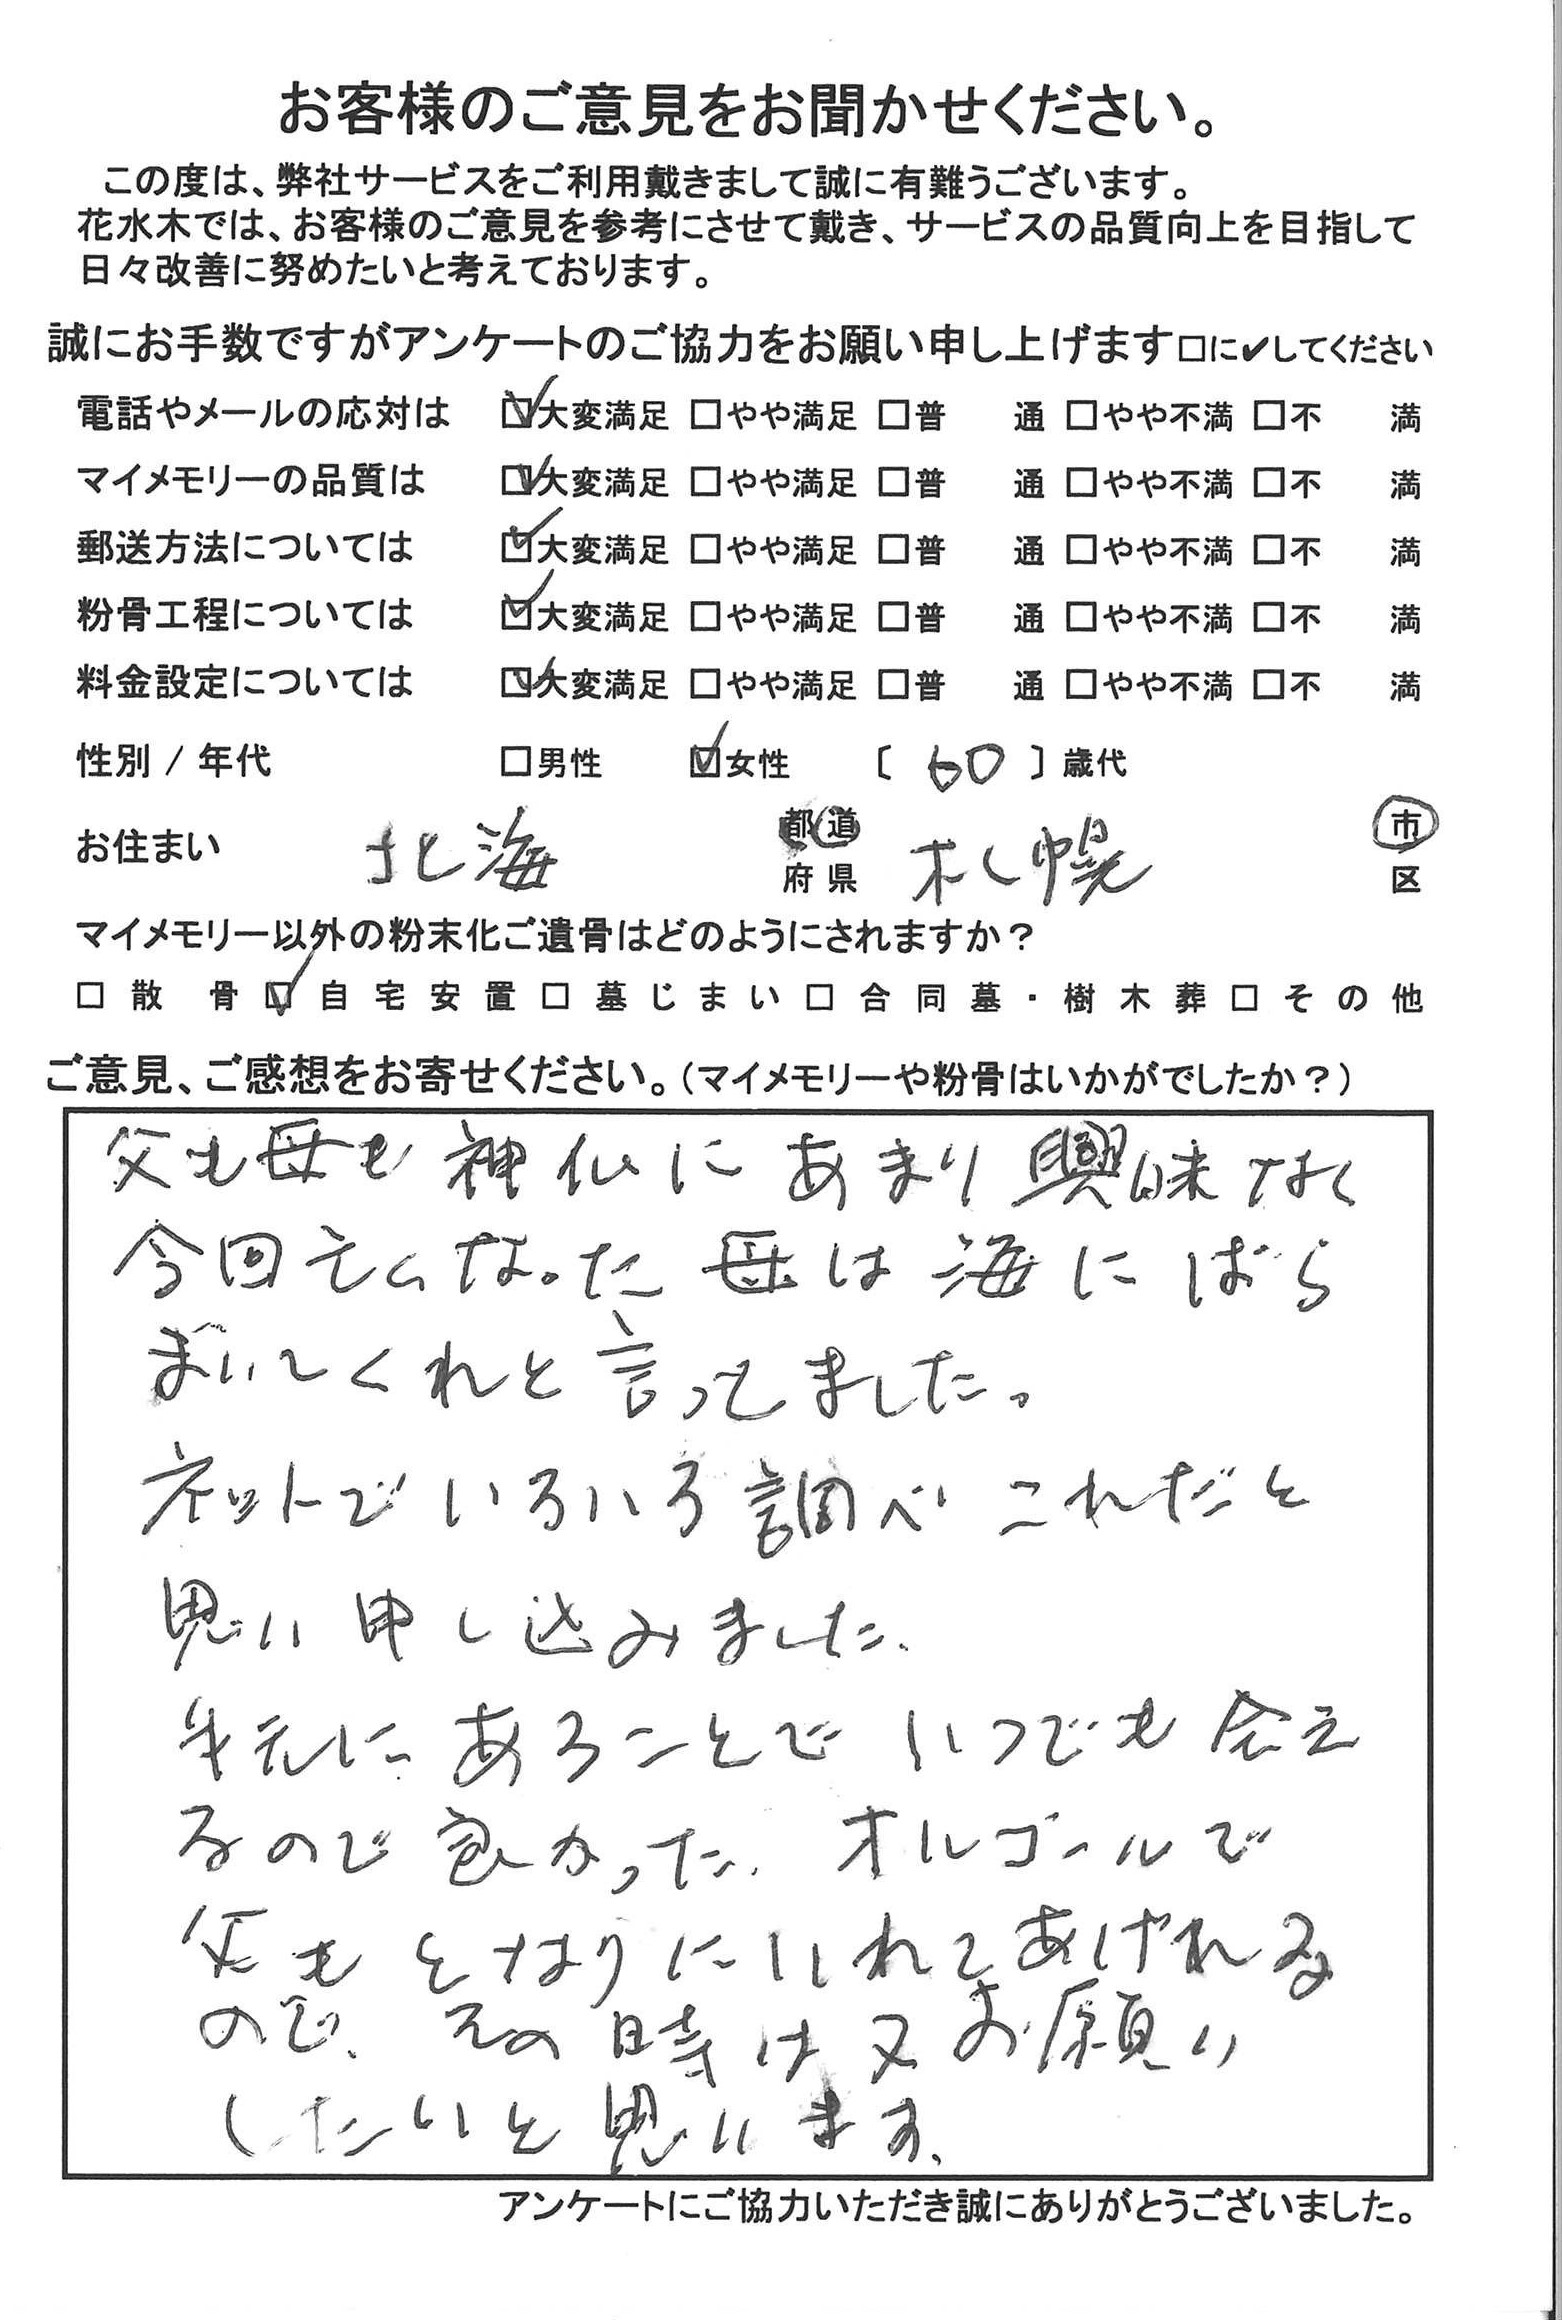 お客様のご意見をお聞かせください。
この度は、弊社サービスをご利用戴きまして誠に有難うございます。
花水木では、お客様のご意見を参考にさせて戴き、サービスの品質向上を目指して
日々改善に努めたいと考えております。
誠にお手数ですがアンケートのご協力をお願い申し上げます□に✔してください
電話やメールの応対は ☑大変満足 □やや満足 □普 通 □やや不満 □不 満
マイメモリーの品質は ☑大変満足 □やや満足 □普 通 □やや不満 □不 満
郵送方法については ☑大変満足 □やや満足 □普 通 □やや不満 □不 満
粉骨工程については ☑大変満足 □やや満足 □普 通 □やや不満 □不 満
料金設定については ☑大変満足 □やや満足 □普 通 □やや不満 □不 満
性別 / 年代 □男性 ☑女性 〔 60 〕歳代
お住まい 北海 都道府県 札幌 市区
マイメモリー以外の粉末化ご遺骨はどのようにされますか？
□散骨 ☑自宅安置 □墓じまい □合同墓・樹木葬 □その他
ご意見、ご感想をお寄せください。(マイメモリーや粉骨はいかがでしたか？)
父も母も神仏にあまり興味なく
今回亡くなった母は海にばら
まいてくれと言ってました。
ネットでいろいろ調べこれだと
思い申し込みました。
手元にあることでいつでも会え
るので良かった。オルゴールで
父もとなりにいれてあげれる
ので、その時は又お願い
したいと思います。
アンケートにご協力いただき誠にありがとうございました。